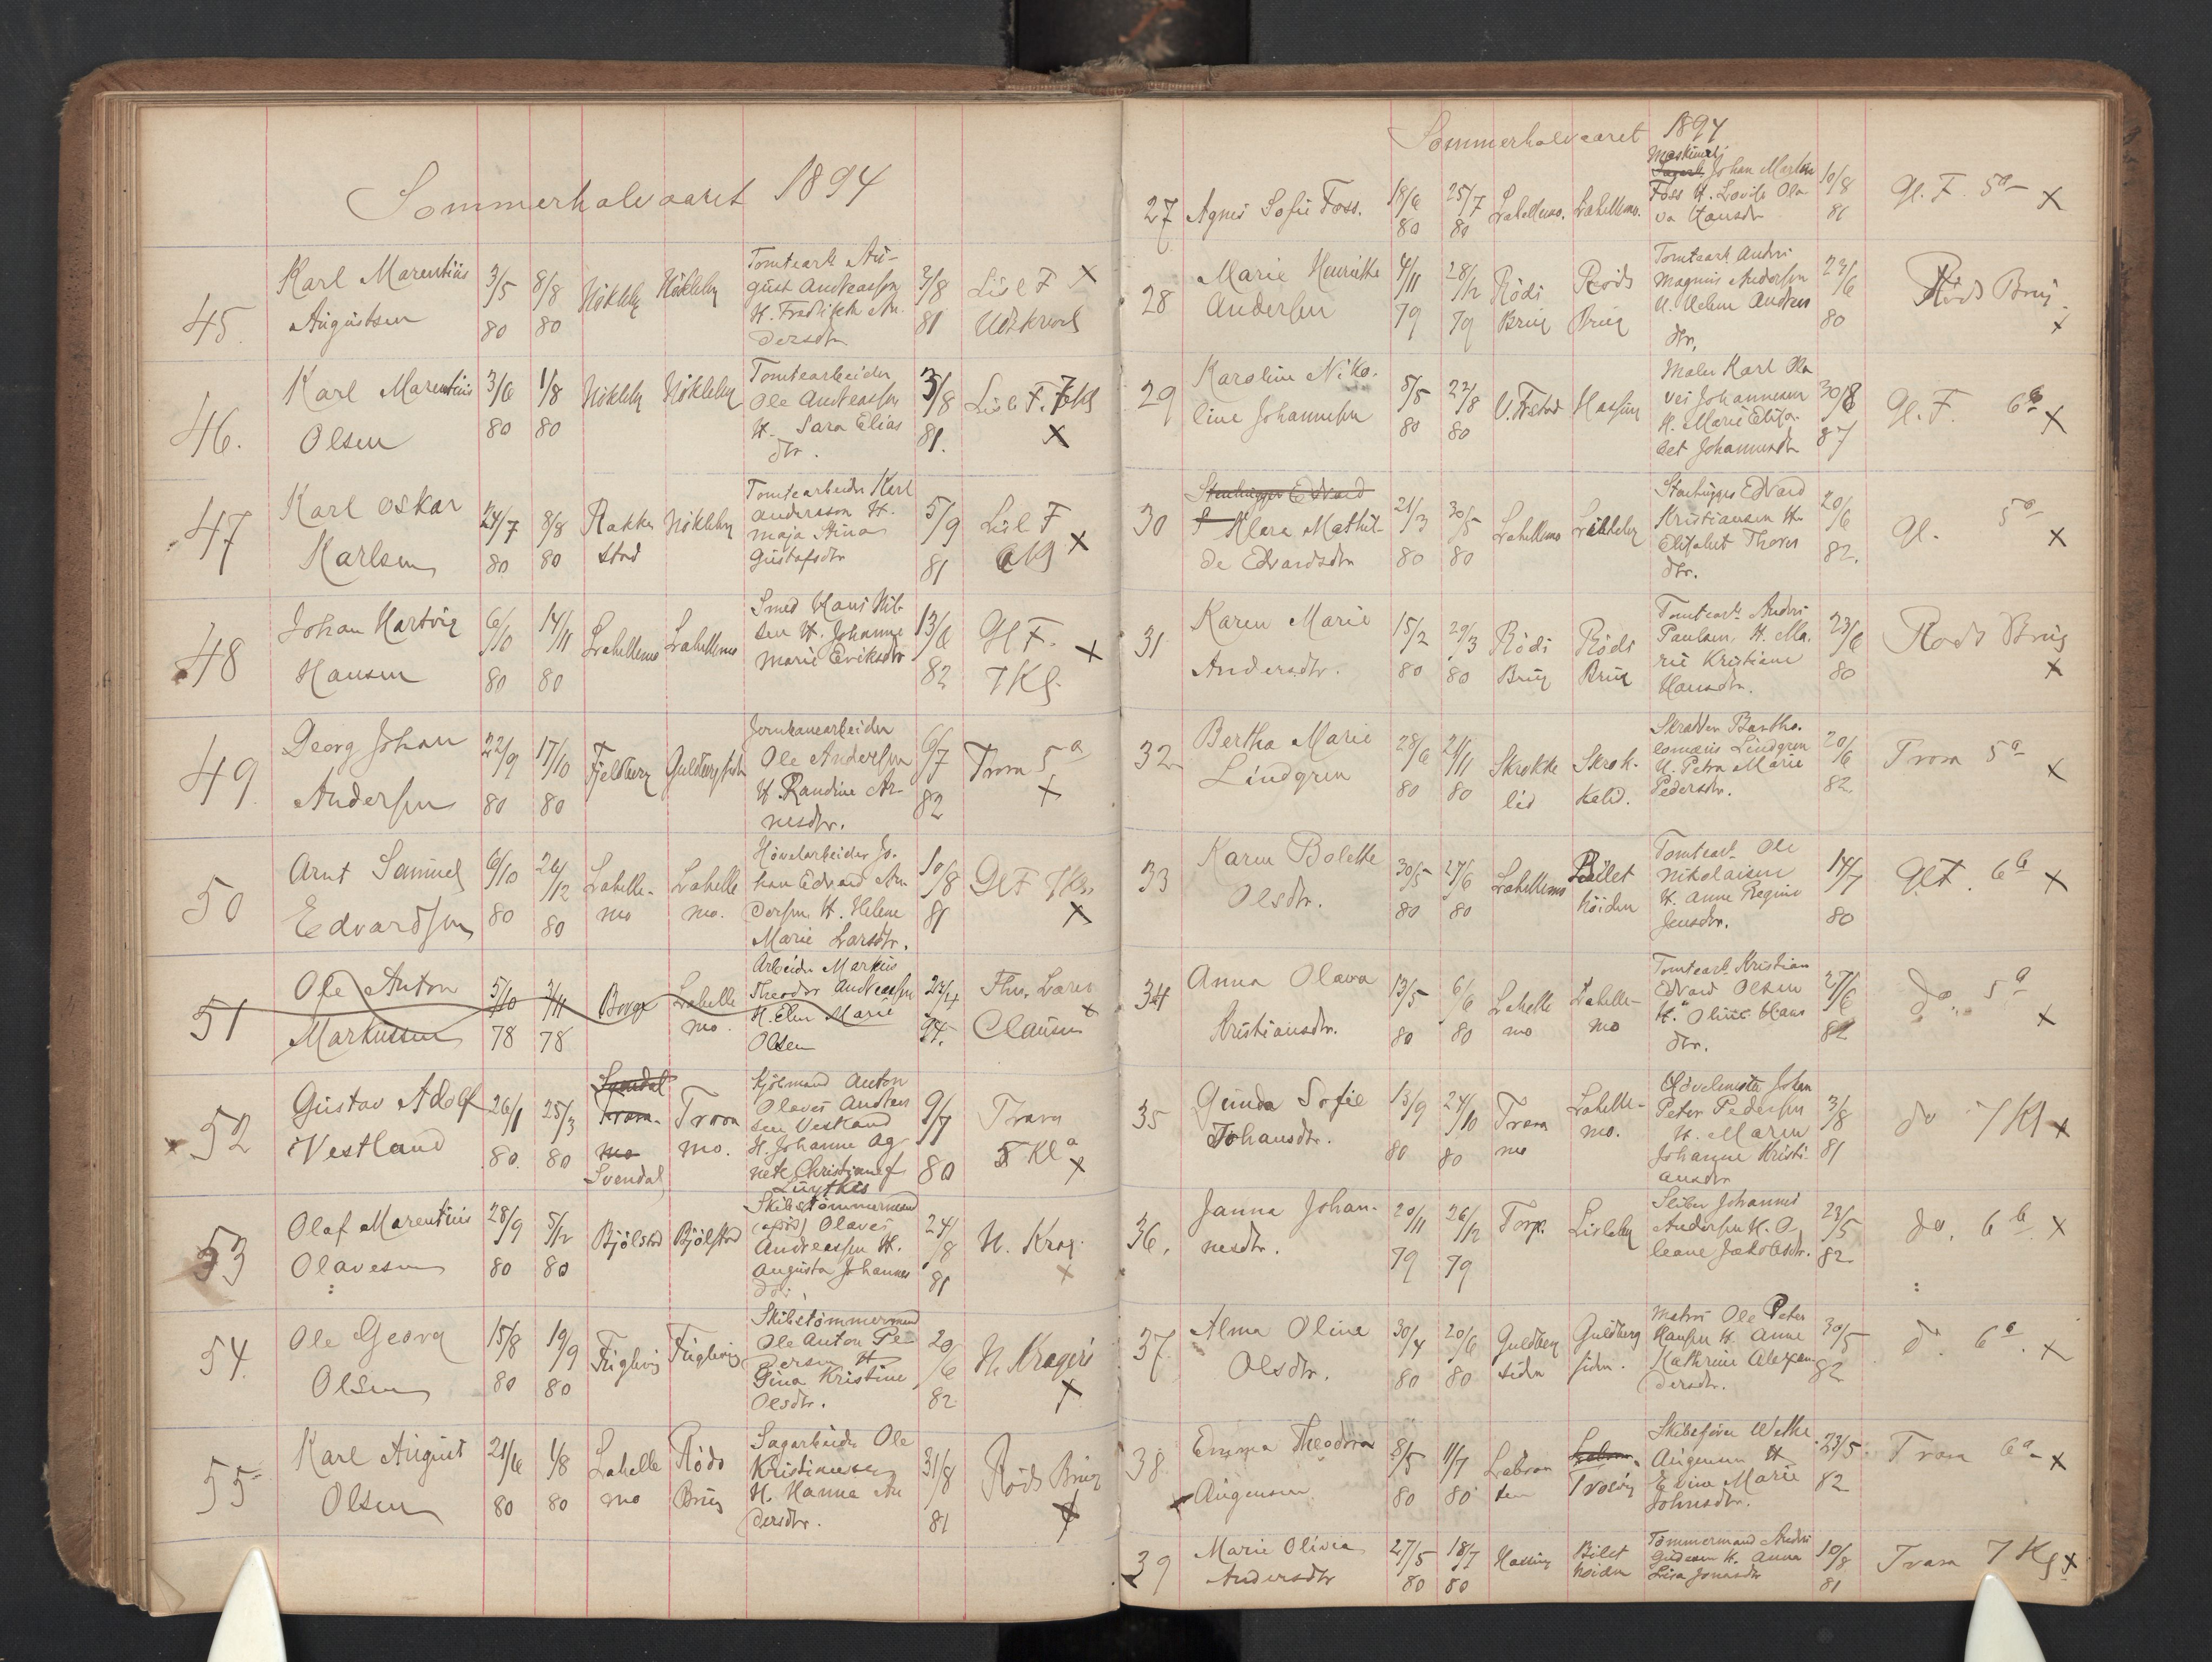 Sommerhalvaaret 1894
45.
Karl Marentius
Augustsen
3/5
80
8/8
80
Nökleby
Nökleby
Tomtearb. Au-
gust Andreassen
H. Fredrikke An-
dersdtr
3/8
81
Lisl F X
Udskrevet
46.
Karl Marentius
Olsen
3/6
80
1/8
80
Nökleby
Nökleby
Tomtearbeider
Ole Andreassen
H. Sara Elias
dtr.
3/8
81.
Lisl. F. 7 Kl
X
47
Karl Oskar
Karlsen
24/7
80
8/8
80
Rakke
stad
Nökleby
Tomtearbeider Karl
Andersson H.
Maja Stina
Gustafsdtr
5/9
81
Lisl F
6 Kl X
48
Johan Hartvig
Hansen
6/10
80
14/11
80
Lahellemo
Lahellemo
Smed Hans Nil-
sen H. Johanne
Marie Eriksdtr
13/6
82
Gl F. X
7 Kl.
49.
Georg Johan
Andersen
22/9
80
17/10
80
Fjeldberg
Guldbergsiden
Jernbanearbeider
Ole Andersen
H. Randine Ar-
nesdtr.
6/7
82
Trara 5 a
X
50
Arnt Samuel
Edvardsen
6/10
80
26/12
80
Lahelle-
mo
Lahelle
mo.
Hövelarbeider Jo-
han Edvard An-
dersen H. Helene
Marie Larsdtr.
10/8
81
Gl F 7 Kl.
X
51
Ole Anton
Markussen
5/10
78
3/11
78
Borge
Lahelle
mo.
Arbeider Markus
Theodor Andreassen
H. Elen Marie
Olsen
23/4
94.
Thv. Larer
Clausen X
52
Gustav Adolf
Vestland
26/1
80.
25/3
80
Svendal
Trara-
mo
Svendal
Trara
mo.
Sjömand Anton
Olaves Andrea
sen Vestland
H. Johanne Ag-
nete Christians f.
Lüytkis
9/7
80
Trara
5 Kl a
X
53
Olaf Marentius
Olavesen
28/9
80
5/12
80
Bjölstad
Bjölstad
Skibstömmermand
Olaves
Andreassen H.
Augusta Johannes
dtr.
24/8
81
N. Krag.
X
54.
Ole Georg
Olsen
15/8
80
19/9
80
Fuglevig
Fuglevig
Skibstömmermand
Ole Anton Pe-
dersen H
Gina Kristine
Olsdtr.
20/6
82
N. Kragers
X
55
Karl August
Olsen
21/6
80
1/8
80
Lahelle
mo
Röds
Brug
Sagarbeider Ole
Kristiansen
H. Hanna An
dersdtr.
31/8
81
Röds Brug
X
Sommerhalvaaret 1894
27
Agnes Sofie Foss.
18/6
80
25/7
80
Lahellemo.
Lahellemo.
Maskinarb
Sagarb. Johan Martin
Foss H. Lovise Ola
va Hansdtr
10/8
81
Gl. F. 5 a X
28
Marie Henriette
Andersen
4/11
79
28/12
79
Röds
Brug
Röds
Brug
Tomtearb Anders
Magnus Andersen
H. Helene Anders
dtr.
23/6
80
Röds Brug.
X
29
Karoline Niko-
line Johannesen
5/5
80
22/8
80
V. Fredrst
Hassing
Maler Karl Ola
ves Johannesen
H. Marie Elisa-
bet Johannesdtr
30/8
87
Gl. F. 6 b X
30
Stenhugger Edvard
Klara Mathil-
de Edvardsdtr
21/3
80
30/5
80
Lahellemo
Lisleby
Stenhugger Edvard
Kristiansen H.
Elisabet Thores
dtr.
20/6
82.
Gl. 5 a X
31
Karen Marie
Andersdtr.
15/2
80
29/3
80
Röds
Brug
Röds
Brug
Tomtearb. Anders
Paulsen H. Ma-
rie Kristiane
Hansdtr.
23/6
80
Röds Brug
X
32
Bertha Marie
Lindgren
28/6
80
21/11
80
Skrokke
lid
Skrok-
kelid.
Skrædder Bartho-
lomæus Lindgren
H. Petra Marie
Pedersdtr.
20/6
82
Trara 5 a X
33
Karen Bolette
Olsdtr.
30/5
80
27/6
80
Lahellemo
Bilet
höiden
Tomtearb. Ole
Nikolaisen
H. Anne Regine
Jensdtr.
14/7
80
Gl F. 6 b X
34
Anna Olava
Kristiansdtr.
13/5
80
6/6
80
Lahelle
mo
Lahelle-
mo
Tomtearb. Kristian
Edvard Olsen
H. Oline Hans
dtr.
27/6
82
do. 5 a X
35
Gunda Sofie
Johansdtr.
13/9
80
24/10
80
Trara
mo
Lahelle-
mo.
Hövelmester Johan
Peter Pedersen
H. Maren
Johanne Kristi-
ansdtr
3/8
81
do 7 Kl X
36.
Janna Johan-
nesdtr.
20/11
79
26/12
79
Torp.
Lisleby
Sliber Johannes
Andersen H. O-
leane Jakobsdtr.
23/5
82
do. 6 b. X
37
Alma Oline
Olsdtr.
30/4
80
20/6
80
Guldberg
siden
Guldberg
siden.
Matros Ole Peter
Hansen H. Anne
Kathrine Alexan-
dersdtr.
30/5
82
do. 6 a. X
38
Emma Theodora
Augensen
8/5
80
11/7
80
Labraa
ten
Trosvig
Skibsförer
Augensen H
Edine Marie
Johnsdtr.
23/5
82
Trara 6 a X
39
Marie Olivia
Andersdtr
27/5
80
18/7
80
Hassing
Bilet
höiden
Tömmermand Anders
H. Anna
Lisa Jonasdtr
10/8
81
Trara 7 Kl X